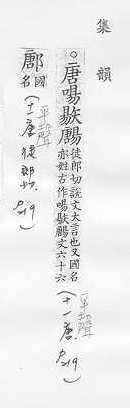 集韻
○唐啺𣉺鶶徒郎切說文大言也又國名
亦姓古作啺𣉺鶶文六十六
(十一唐)
平聲
P219
鄌國名
(十一唐徒郎切)
平聲
P219